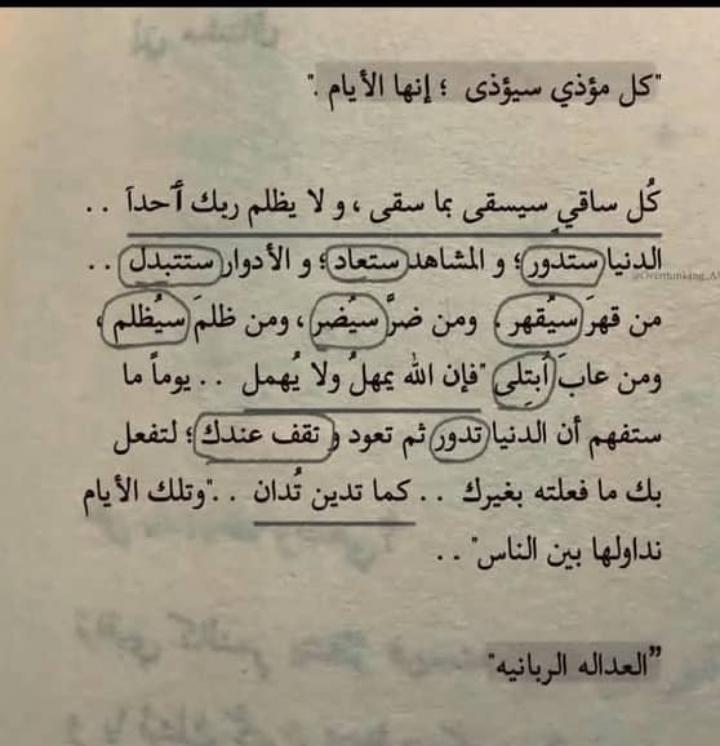 "كل مؤذي سيؤذى ؛ إنها الأيام ."
كُل ساقي سيسقى بما سقى ، و لا يظلم ربك أحداً . .
الدنيا ستدور ؛ و المشاهد ستعاد ؛ و الأدوار ستتبدل . .
من قهرَ سيُقهر ، ومن ضرَّ سيُضر ، ومن ظلمَ سيُظلم ،
ومن عابَ أبتلي "فإن الله يمهلُ ولا يُهمل . . يوماً ما
ستفهم أن الدنيا تدور ثم تعود و تقف عندك ؛ لتفعل
بك ما فعلته بغيرك . . كما تدين تُدان . . "وتلك الأيام
نداولها بين الناس" . .
"العداله الربانيه"